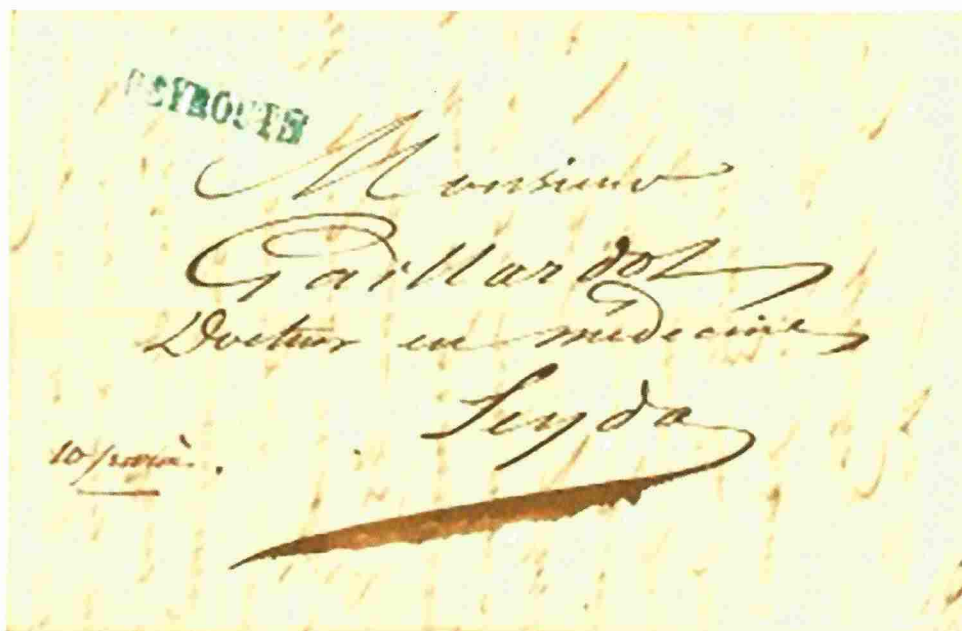 BEYROUTH
Monsieur
Gaillardot
Docteur en médecine
Seyda
10